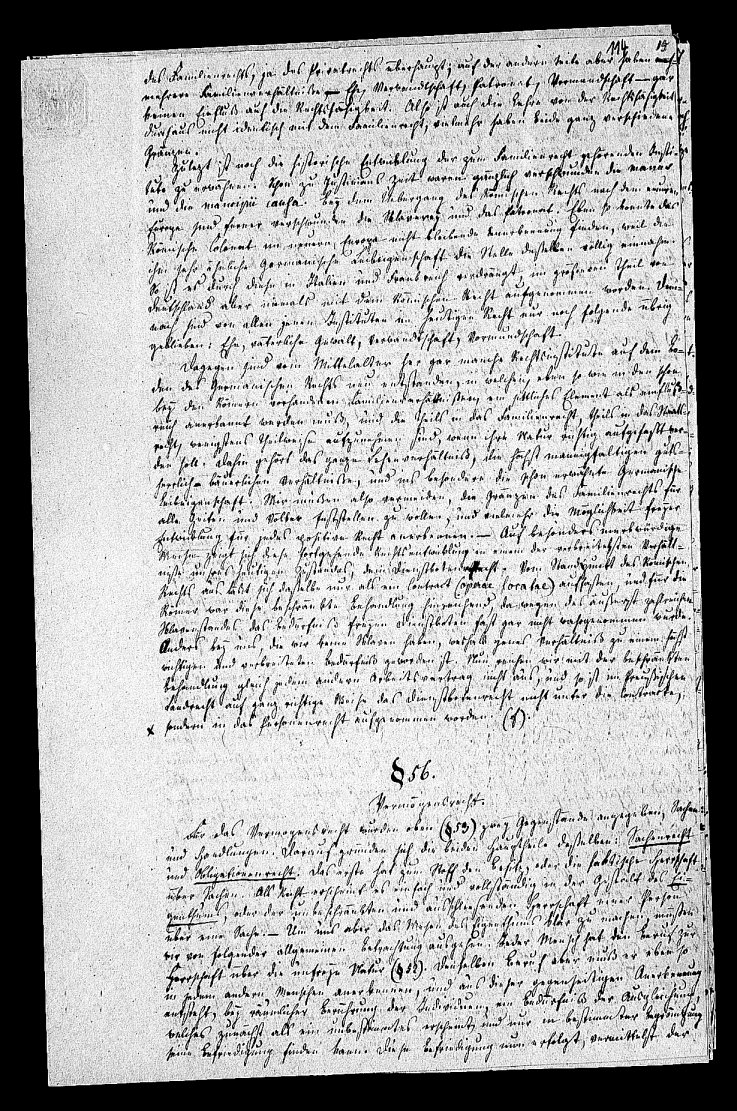 114 19
des Familienrechts, ja des Privatrechts überhaupt; auf der andern Seite aber haben
mehrere Familienverhältnisse – Ehe, Verwandtschaft, Patronat, Vormundschaft – gar
keinen Einfluß auf die Rechtsfähigkeit. Also ist auch die Lehre von der Rechtsfähigkeit
durchaus nicht identisch mit dem Familienrecht, vielmehr haben beide ganz verschiedene
Gränzen.
Zuletzt ist noch die historische Entwicklung der zum Familienrecht gehörenden Insti-
tute zu erwähnen. Schon zu Justinians Zeit waren gänzlich verschwunden die manus
und die mancipii causa. Bey dem Uebergang des Römischen Rechts nach dem neuern
Europa sind ferner verschwunden die Sklaverey und das Patronat. Eben so konnte das
Römische Colonat im neuern Europa nicht bleibende Anerkennung finden, weil die
ihm sehr ähnliche Germanische Leibeigenschaft die Stelle desselben völlig einnahm.
So ist es durch diese in Italien und Frankreich verdrängt, im größeren Theil von
Deutschland aber niemals mit dem Römischen Recht aufgenommen worden. Dem-
nach sind von allen jenen Instituten im heutigen Recht nur noch folgende übrig
geblieben: Ehe, väterliche Gewalt, Verwandtschaft, Vormundschaft.
Dagegen sind vom Mittelalter her gar manche Rechtsinstitute auf dem Bo-
den des Germanischen Rechts neu entstanden, in welchen, eben so wie in den schon
bey den Römern vorhandenen Familienverhältnissen, ein sittliches Element als einfluß-
reich anerkannt werden muß, und die theils in das Familienrecht, theils in das Staats-
recht, wenigstens theilweise aufzunehmen sind, wenn ihre Natur richtig aufgefaßt wer-
den soll. Dahin gehört das ganze Lehenverhältniß, die höchst mannigfaltigen guts-
herrlich-bäuerlichen Verhältnisse, und insbesondere die schon erwähnte Germanische
Leibeigenschaft. Wir müssen also vermeiden, die Gränzen des Familienrechts für
alle Zeiten und Völker feststellen zu wollen, und vielmehr die Möglichkeit freyer
Entwicklung für jedes positive Recht anerkennen. – Auf besonders merkwürdige
Weise zeigt sich diese fortgehende Rechtsentwicklung in einem der verbreitetsten Verhält-
nisse unsres heutigen Zustandes, dem Dienstbotenrecht. Vom Standpunkt des Römischen
Rechts aus läßt sich dasselbe nur als ein Contract (operae locatae) auffassen, und für die
Römer war diese beschränkte Behandlung hinreichend, da wegen des äußerst zahlreichen
Sklavenstandes das Bedürfniß freyer Dienstboten fast gar nicht wahrgenommen wurde.
Anders bey uns, die wir keine Sklaven haben, weshalb jenes Verhältniß zu einem höchst
wichtigen und verbreiteten Bedürfniß geworden ist. Nun reichen wir mit der beschränkten
Behandlung gleich jedem andern Arbeitsvertrag nicht aus, und so ist im Preußischen
Landrecht auf ganz richtige Weise das Dienstbotenrecht nicht unter die Contracte,
x sondern in das Personenrecht aufgenommen worden.
§ 56.
Vermögensrecht.
Für das Vermögensrecht wurden oben (§ 53) zwey Gegenstände angegeben, Sachen
und Handlungen. Darauf gründen sich die beiden Haupttheile desselben: Sachenrecht
und Obligationenrecht. Das erste hat zum Stoff den Besitz, oder die factische Herrschaft
über Sachen. Als Recht erscheint es einfach und vollständig in der Gestalt des Ei-
genthums, oder der unbeschränkten und ausschließenden Herrschaft einer Person
über eine Sache. – Um uns aber das Wesen des Eigenthums klar zu machen, müssen
wir von folgender allgemeinen Betrachtung ausgehen. Jeder Mensch hat den Beruf zur
Herrschaft über die unfreye Natur (§ 52). Denselben Beruf aber muß er eben so
in jedem andern Menschen anerkennen, und aus dieser gegenseitigen Anerkennung
entsteht, bey räumlicher Berührung der Individuen, ein Bedürfniß der Ausgleichung,
welches zunächst als ein unbestimmtes erscheint, und nur in bestimmter Begränzung
seine Befriedigung finden kann. Diese Befriedigung nun erfolgt, vermittelst der